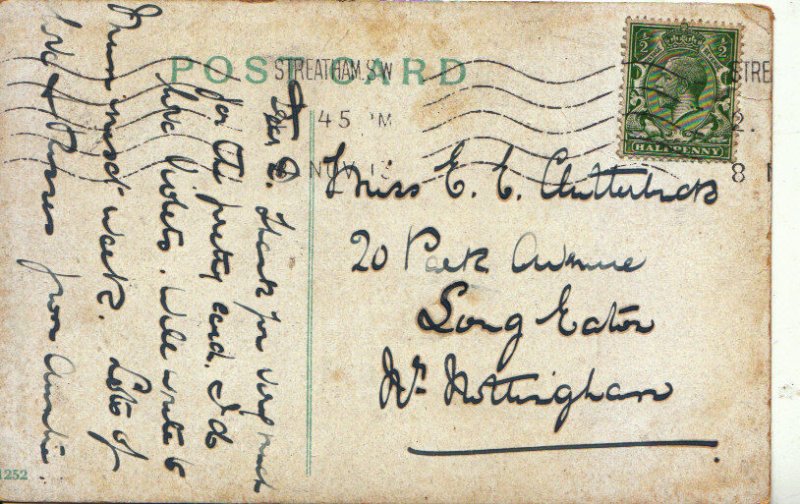 POST CARD
STREATHAM. S.W
45 PM
NOV 13
STRE
2.
8
HALFPENNY
Dear E. Thank for very much
for the pretty card. I do
love Violets. Will write to
Mum next week. Lots of
love & kisses from Auntie.
Miss E. E. Clutterbuck
20 Park Avenue
Long Eaton
Nr Nottingham
1252